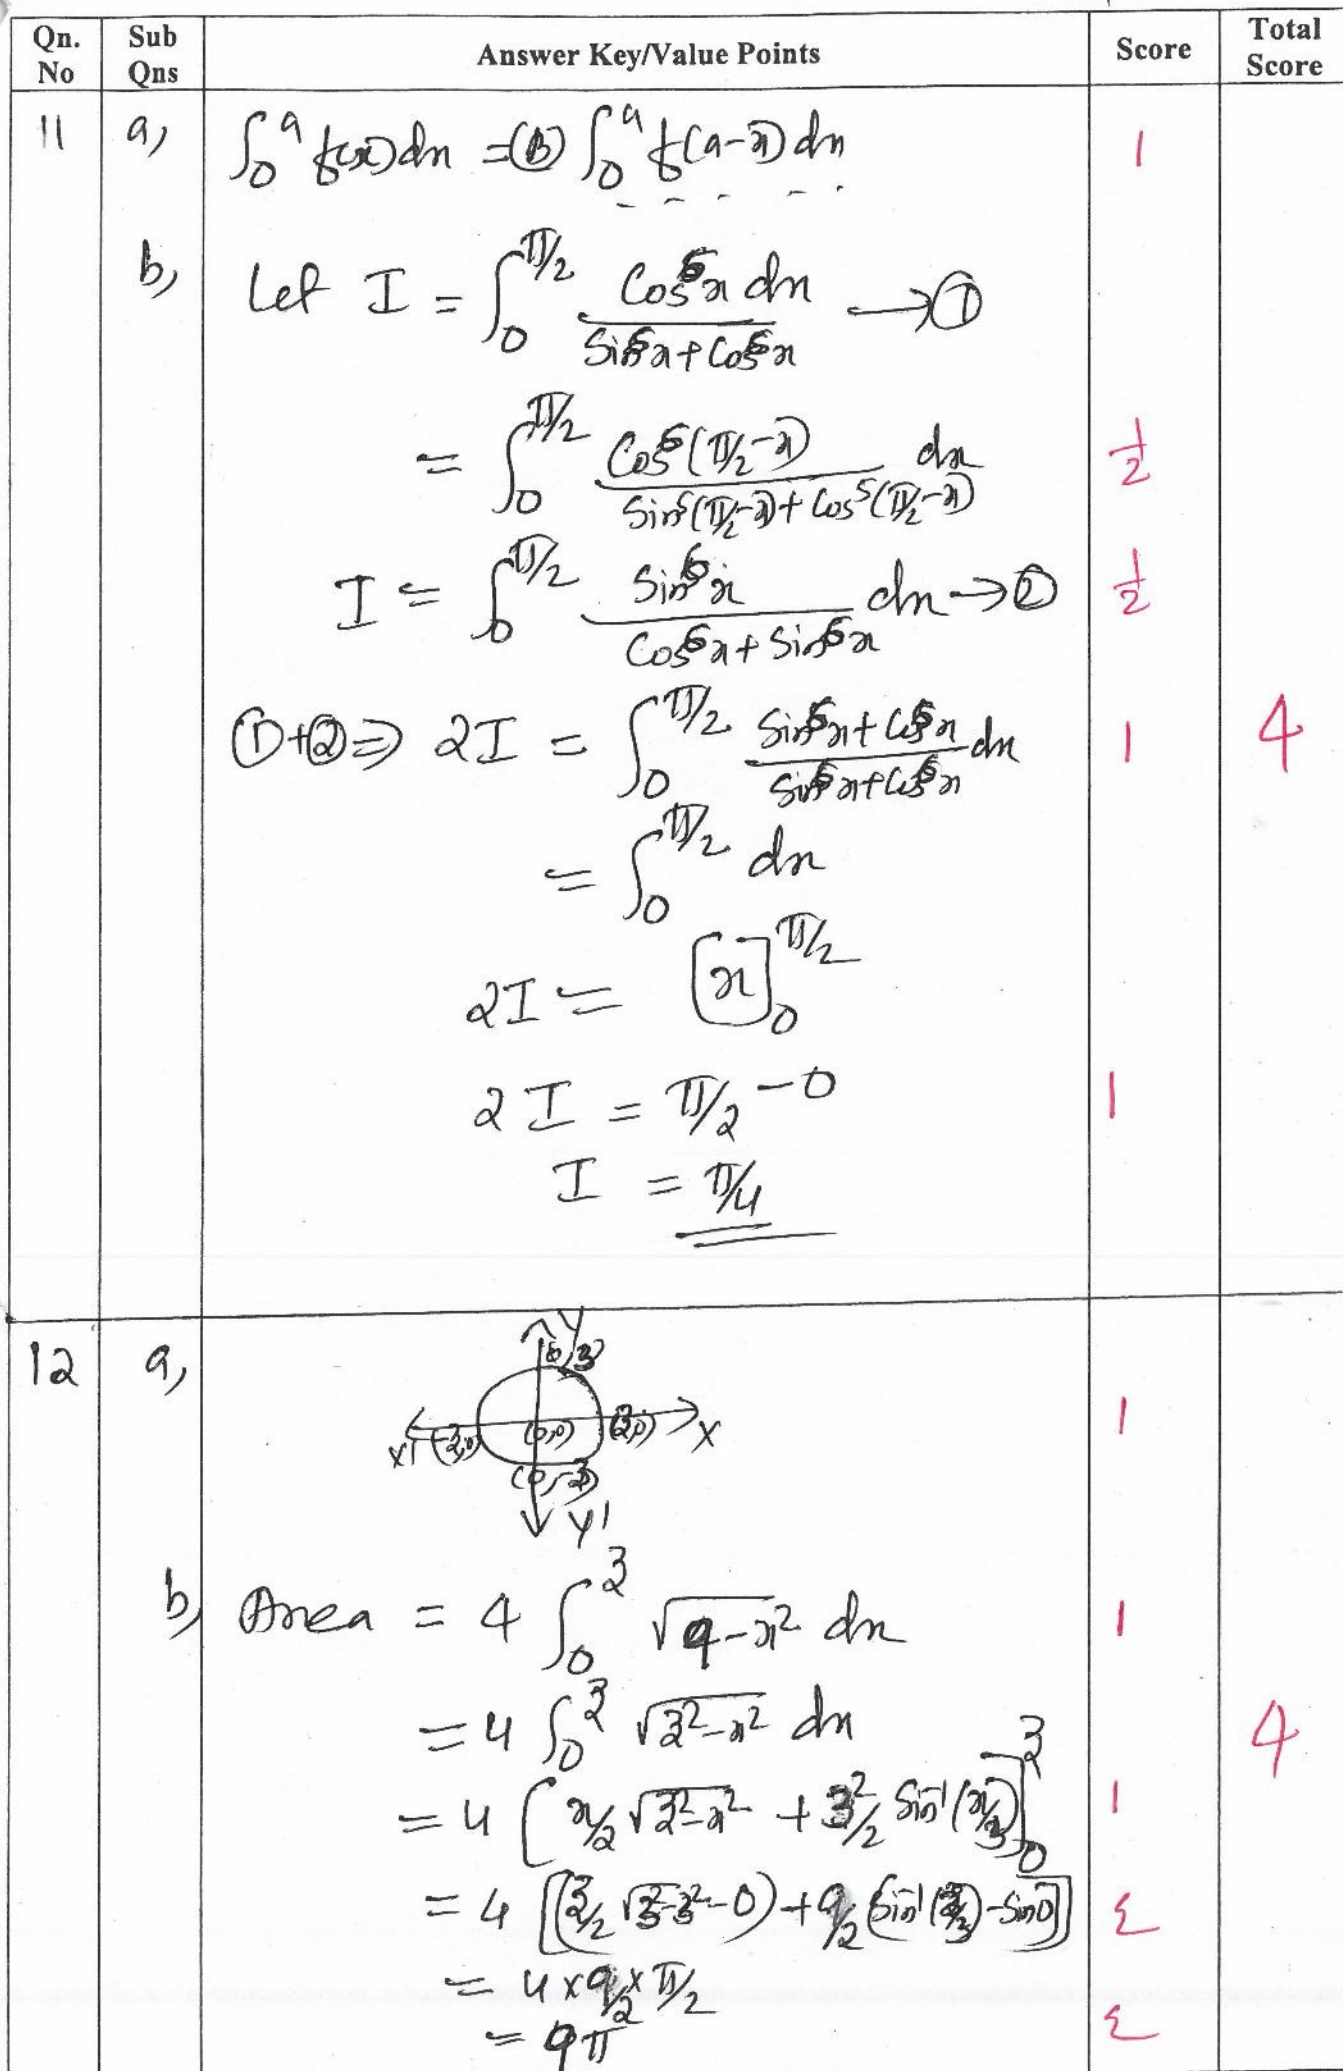 Qn. No | Sub Qns | Answer Key/Value Points | Score | Total Score
11 a, ∫₀^a f(x) dx = (B) ∫₀^a f(a-x) dx 1
b, Let I = ∫₀^{π/2} Cos⁵x dx / Sin⁵x + Cos⁵x → ①
= ∫₀^{π/2} Cos⁵(π/2-x) / Sin⁵(π/2-x) + Cos⁵(π/2-x) dx 1/2
I = ∫₀^{π/2} Sin⁵x / Cos⁵x + Sin⁵x dx → ② 1/2
① + ② ⇒ 2I = ∫₀^{π/2} Sin⁵x + Cos⁵x / Sin⁵x + Cos⁵x dx 1 4
= ∫₀^{π/2} dx
2I = [x]₀^{π/2}
2I = π/2 - 0 1
I = π/4
12 a, Y
(0,3)
X' (-3,0) (0,0) (3,0) X 1
(0,-3)
Y'
b, Area = 4 ∫₀^3 √9-x² dx 1
= 4 ∫₀^3 √3²-x² dx 4
= 4 [x/2 √3²-x² + 3²/2 Sin⁻¹(x/3)]₀^3 1
= 4 [(3/2 √3²-3² - 0) + 9/2 (Sin⁻¹(3/3) - Sin⁻¹0)]
= 4 × 9/2 × π/2
= 9π